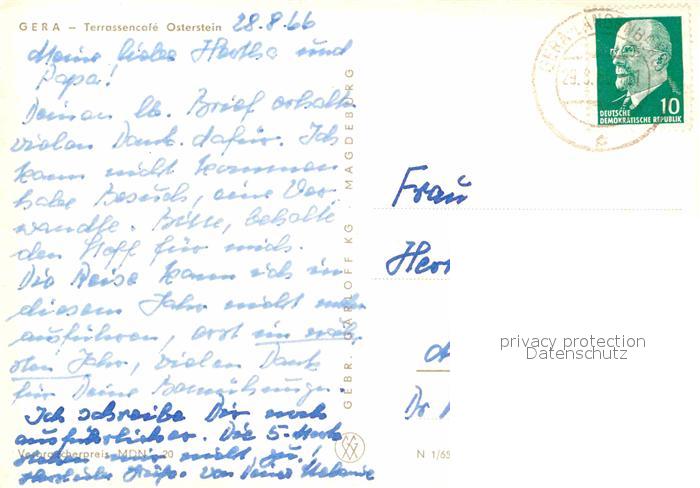 GERA – Terrassencafé Osterstein 28.8.66
Meine liebe Hertha und
Papa!
Deinen lb. Brief erhalten
vielen Dank dafür. Ich
kann nicht kommen
habe Besuch, eine Ver
wandte. Bitte, behalte
den Stoff für mich.
Die Reise kann ich in
diesem Jahr nicht mehr
ausführen, erst im näch
sten Jahr, vielen Dank
für Deine Bemühungen.
Ich schreibe Dir noch
ausführlicher. Die 5.
nicht zu!
Herzliche Grüße von Deiner
Verbraucherpreis MDN 20
GEBR. GARLOFF KG MAGDEBURG
N 1/65
GERA-LANGENBERG
29.8.
DEUTSCHE
DEMOKRATISCHE REPUBLIK
10
Frau
Her
Dr
privacy protection
Datenschutz